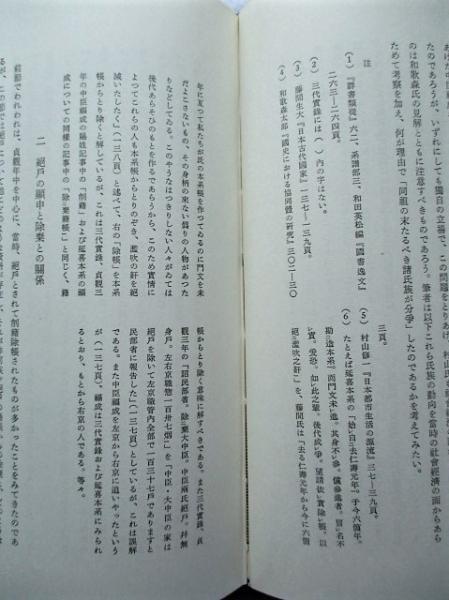 たのであろうが、いずれにしても獨自の立場で、この問題をとりあげ、村山氏も
のは和歌森氏の見解とともに注意すべきものであろう。筆者は以下これら氏族の動向を當時の社會經濟の面からあら
ためて考察を加え、何が理由で「同祖の末たるべき諸氏族が分爭」したのであるかを考えてみたい。
註
(1) 『群書類従』六二、系譜部三、和田英松編『國書逸文』
二六三―二六四頁。
(2) 三代實録には( )内の字はない。
(3) 藤間生大『日本古代國家』一三七―一三九頁。
(4) 和歌森太郎『國史における協同體の研究』三〇二―三〇
三頁。
(5) 村山修一『日本都市生活の源流』三七―三九頁。
(6) たとえば延喜本系の「始
去仁壽元年
于今六箇年。
勘
造本系
而門文未
進。其身不
參。儻參進者。冒
名不
實。爰恐。如
此之輩。後代成
爭。望請依
實除
帳。以
絕
濫吹之訴
」を、藤間氏は「去る仁壽元年から今に六箇
年に亙つて私たちが氏の本系帳を作つてゐるのに門文を未
だよこさないもの、その身柄の來ない僞りの人物があつた
りなどしてゐる。このやうなはつきりしない人々がゐては
後代あらそひのもとを作るであらうから、このため實情に
よつてこれらの人も本系帳からとりのぞき、濫吹の訴を絕
滅いたしたく」(一三八頁)と述べて、右の「除帳」を本系
帳からとり除くと解しているが、これは三代實録、貞觀三
年の中臣編成の隣接記事中の「削籍」および延喜本系の編
成についての同様の記事中の「除
籍帳」と同じく、籍
帳からとり除く意味に解すべきである。また三代實録、貞
觀三年の「詔民部省。除
大中臣。中臣兩氏絕戸。幷無
身戸。左右京職惣一百卅七烟」を「中臣・大中臣の家は
絕戸を除いて左京職管内全部で一百三十七戸でありますと
民部省に報告した」(一三七頁)としているが、これは誤解
である。また中臣編成を左京から右京に追いやったという
(一三七頁)、編成は三代實録および延喜本系にみられ
るとおり、もとから右京の人である。等々。
二 絕戸の顯申と除棄との關係
前節でわれわれは、貞觀年中を中心に、當時、絕戸とされて削籍除帳されたものが多かったことをみてきたのであ